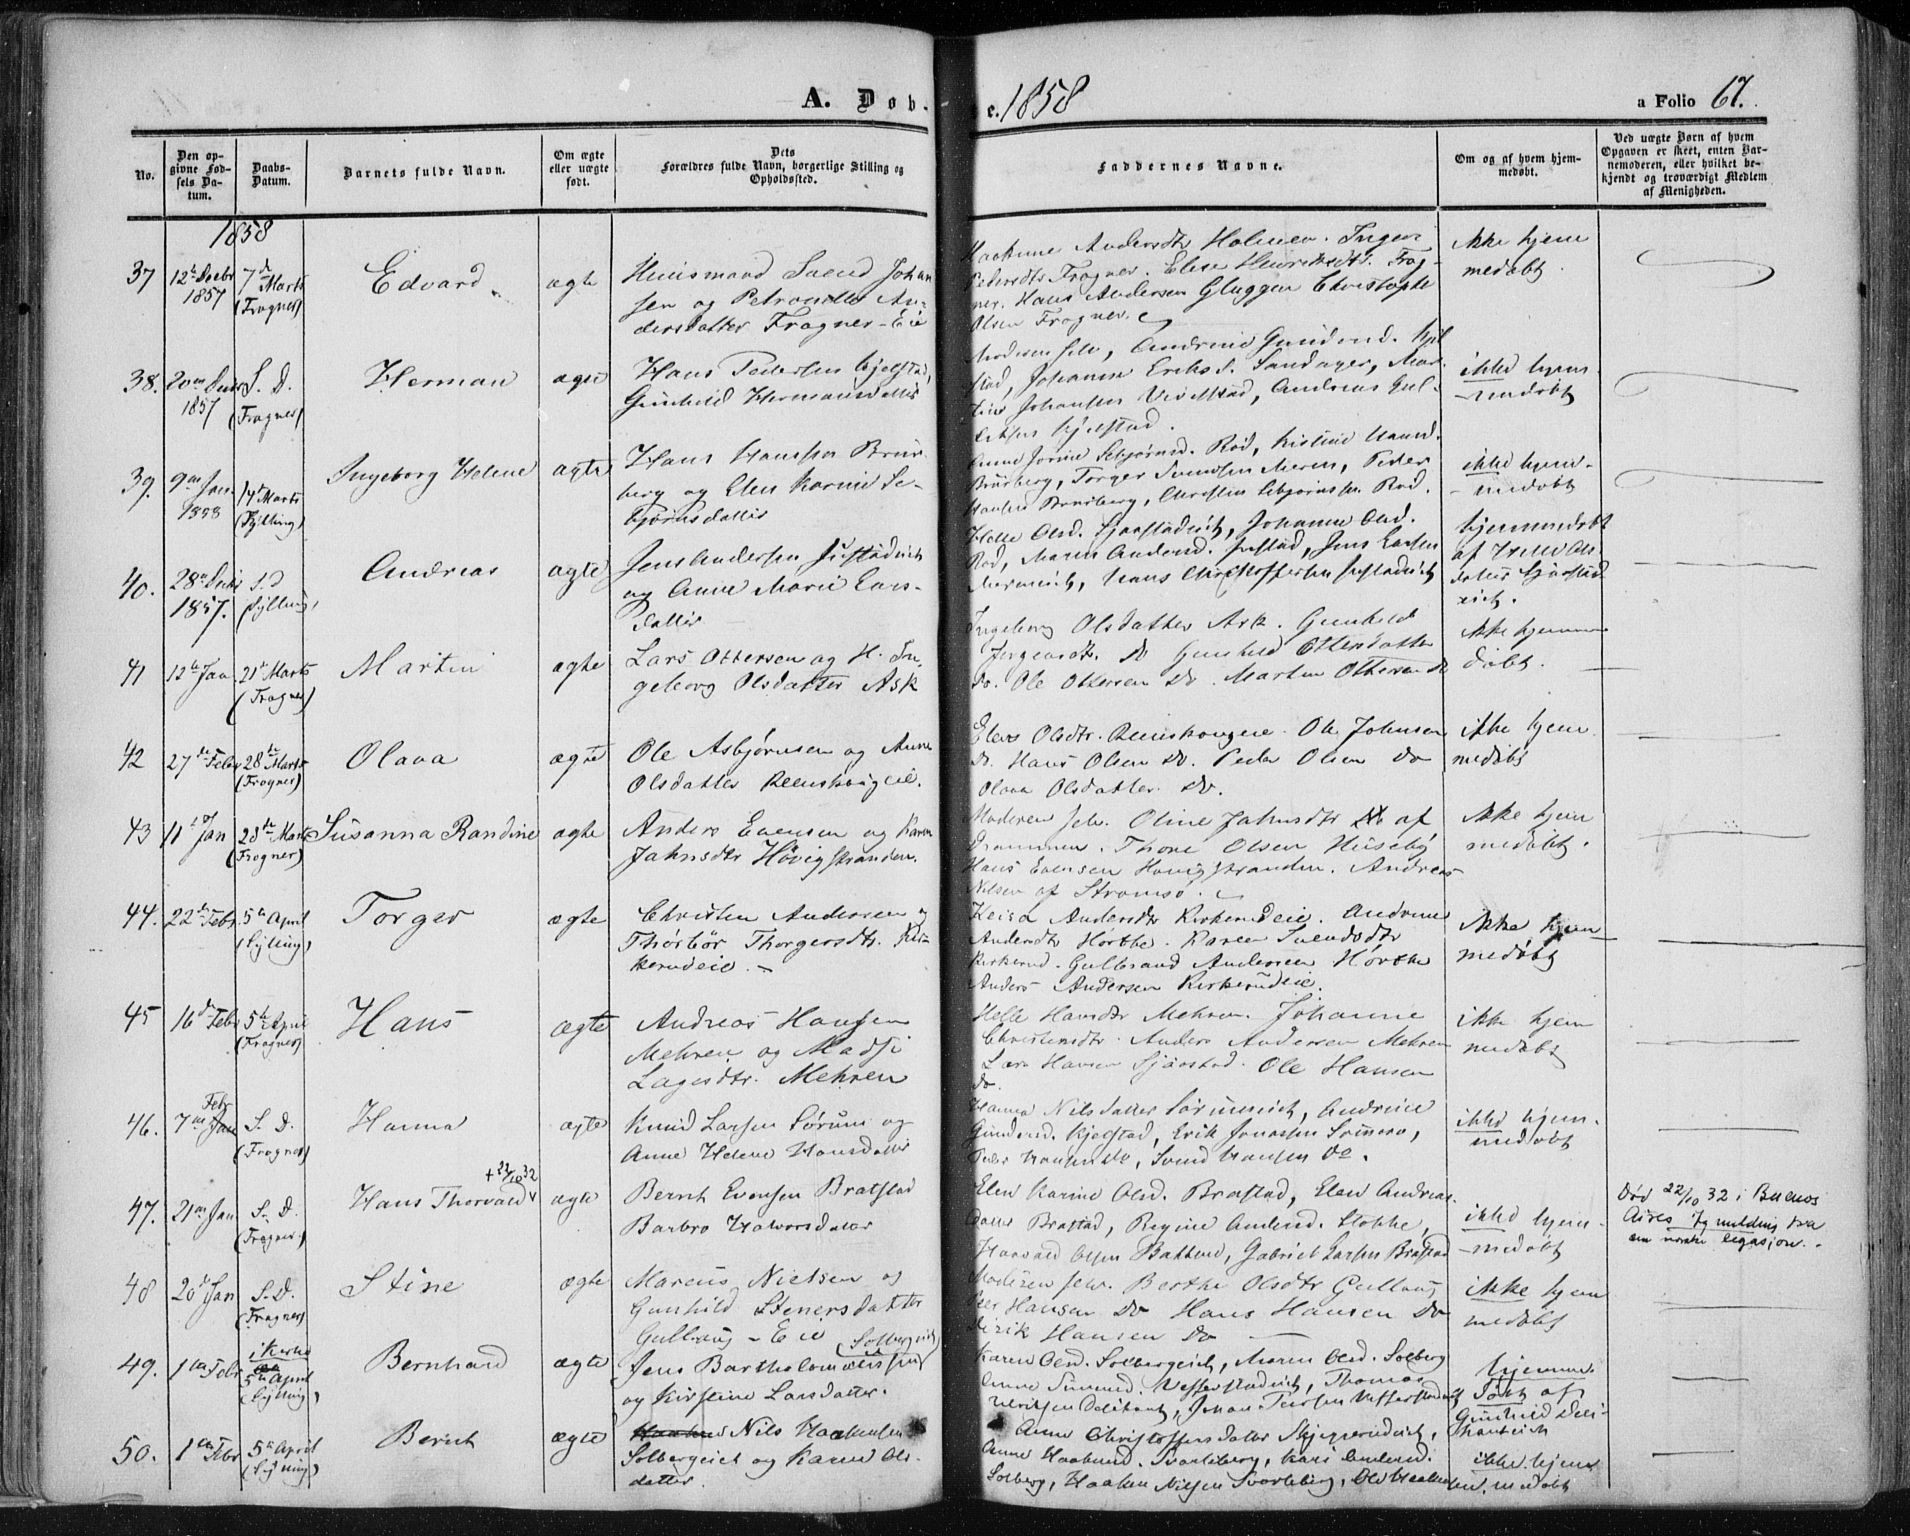 A. Døb.
c. 1858
a Folio 67.
No.
Den opgivne Fødsels Datum.
Daabs-Datum.
Barnets fulde Navn.
Om ægte eller uægte født.
Dets Forældres fulde Navn, borgerlige Stilling og Opholdssted.
Faddernes Navne.
Om og af hvem hjemmedøbt.
Ved uægte Barn af hvem Opgaven er skeet, enten Barnemoderen, eller hvilket bekjendt og troværdigt Medlem af Menigheden.
1858
37
12te Decbr 1857
7de Marts (Frogner)
Edvard
ægte
Huusmand Svend Johan-
sen og Petronille An-
dersdatter Frogner-Eie
Haakine Andersdtr Holmen. Inger
Pedersdtr Frogner. Elise Henriksdtr. Frog-
ner. Hans Andersen Gluggen Christophe
Olsen Frogner.
ikke hjem
medøbt
38.
20de Decbr 1857
S. D. (Frogner)
Herman
ægte
Hans Pedersen Kjelstad,
Gunhild Hermansdatter
Moderen selv, Andrine Gundersd. Kjel
stad, Johanne Eriksd. Sandager, Mar-
Johansen Vivelstad, Andreas Gul-
Kjelstad.
ikke hjem-
medøbt
39.
9de Jan. 1858
14de Marts (Sylling)
Ingeborg Helene
ægte
Hans Hansen Brur-
berg og Elen Karine Se-
bjørnsdatter
Anne Jorine Sebjørnsd. Rød, Kristine Hansd.
Brurberg, Torger Svendsen Meren, Peder
Hansen Brurberg, Christen Sebjørnsen Rød.
ikke hjem-
medøbt
40.
28de Decbr 1857.
S. D (Sylling)
Andreas
ægte
Jens Andersen Justadeiet
og Anne Marie Lars-
datter
Helle Olsd. Sjaastadeiet, Johanne Olsd.
Rød, Maren Andersd. Justad, Jens Larsen
Mereneiet, Hans Christoffersen Justadeiet
hjemmedøbt
af Helle Ols-
datter Sjaastad
eiet.
41
12te Jan
21de Marts (Frogner)
Martin
ægte
Lars Ottersen og H. In-
geborg Olsdatter Ask
Ingeborg Olsdatter Ask. Gunhild
Jørgensdtr. Do Gunhild Ottersdatter
Do. Ole Ottersen Do. Martin Ottersen Do
ikke hjemme
døbt.
42
27de Febr
28de Marts (Frogner)
Olava
ægte
Ole Asbjørnsen og Anne
Olsdatter Reenskougeie.
Elen Olsdtr. Reenskougeie. Ole Johnsen
Do. Hans Olsen Do. Peder Olsen Do
Olava Olsdatter. Do.
ikke hjem
medøbt
43
11te Jan
28de Marts (Frogner)
Susanna Randine
ægte
Anders Evensen og Karen
Jahnsdtr Høvigstranden.
Moderen selv. Oline Jahnsdtr af
Drammen. Thore Olsen Huseby
Hans Evensen Høvigstranden. Andreas
Nilsen af Strømsø.
ikke hjem
medøbt.
44.
22de Febr
5te April (Sylling)
Torger
ægte
Christen Andersen og
Thorbør Thorgersdtr. Kir-
kerudeie.
Keisa Andersdtr Kirkerudeie. Andrine
Andersdtr Hørthe. Karen Svendsdtr
Kirkerud. Gulbrand Andersen Hørthe
Anders Andersen Kirkerudeie.
ikke hjem
medøbt
45
16de Febr
5te April (Frogner)
Hans
ægte
Andreas Hansen
Mehren og Madsi
Lagesdtr. Mehren
Helle Hansdtr Mehren. Johanne
Christensdtr. Anders Andersen Mehren
Lars Hansen Sjåstad. Ole Hansen
Do.
ikke hjem
medøbt
46.
7de Jan Febr
S. D. (Frogner)
Hanna
ægte
Knud Larsen Sørum og
Anne Helene Hansdatter
Hanna Nilsdatter Sørumeiet, Andrine
Gundersd. Kjelstad, Erik Jonassen
Peder Hansen Do, Svend Hansen Do.
ikke hjem-
medøbt
47.
21de Jan
S. D. (Frogner)
Hans Thorvald
+ 22/10 32
ægte
Bernt Evensen Bratstad
Barbro Halvorsdatter
Elen Karine Olsd. Brastad, Elen Andreas-
datter Brastad, Regine Andersd. Stokke,
Haavald Olsen Bakkerud, Gabriel Larsen Brastad
ikke hjem-
medøbt
Død 22/10 32 i Buenos
Aires flg melding fra
den norske legasjon.
48
20de Jan
S. D. (Frogner)
Stine
ægte
Marcus Nielsen og
Gunhild Stenersdatter
Gulhaug-Eie
Moderen selv. Berthe Olsdtr Gulhaug
Peder Hansen Do Hans Hansen Do
Dirik Hansen Do
ikke hjem
medøbt
49.
1ste Febr
i Kirke
5te April (Sylling)
Bernhard
ægte
Jens Bartholomæussen (Solbergeiet)
og Kirstine Larsdatter.
Karen Olsd. Solbergeiet, Maren Olsd. Solberg
Anne Simensd. Vefferstadeiet, Thomas
Ulriksen Delihant, Johan Iversen Vefferstadeiet
hjemme-
døbt af
Gunhild Deli-
hanteiet
50.
1ste Febr
5te April (Sylling)
Bernt
ægte
Nils Haakensen
Solbergeiet og Karen Ols-
datter
Anne Christoffersdatter Skjæggerudeiet,
Anne Haakensd. Svarteberg, Kari Andersd.
Solberg, Haaken Nilsen Svarteberg, Ole Haaken-
sen.
ikke hjem
medøbt